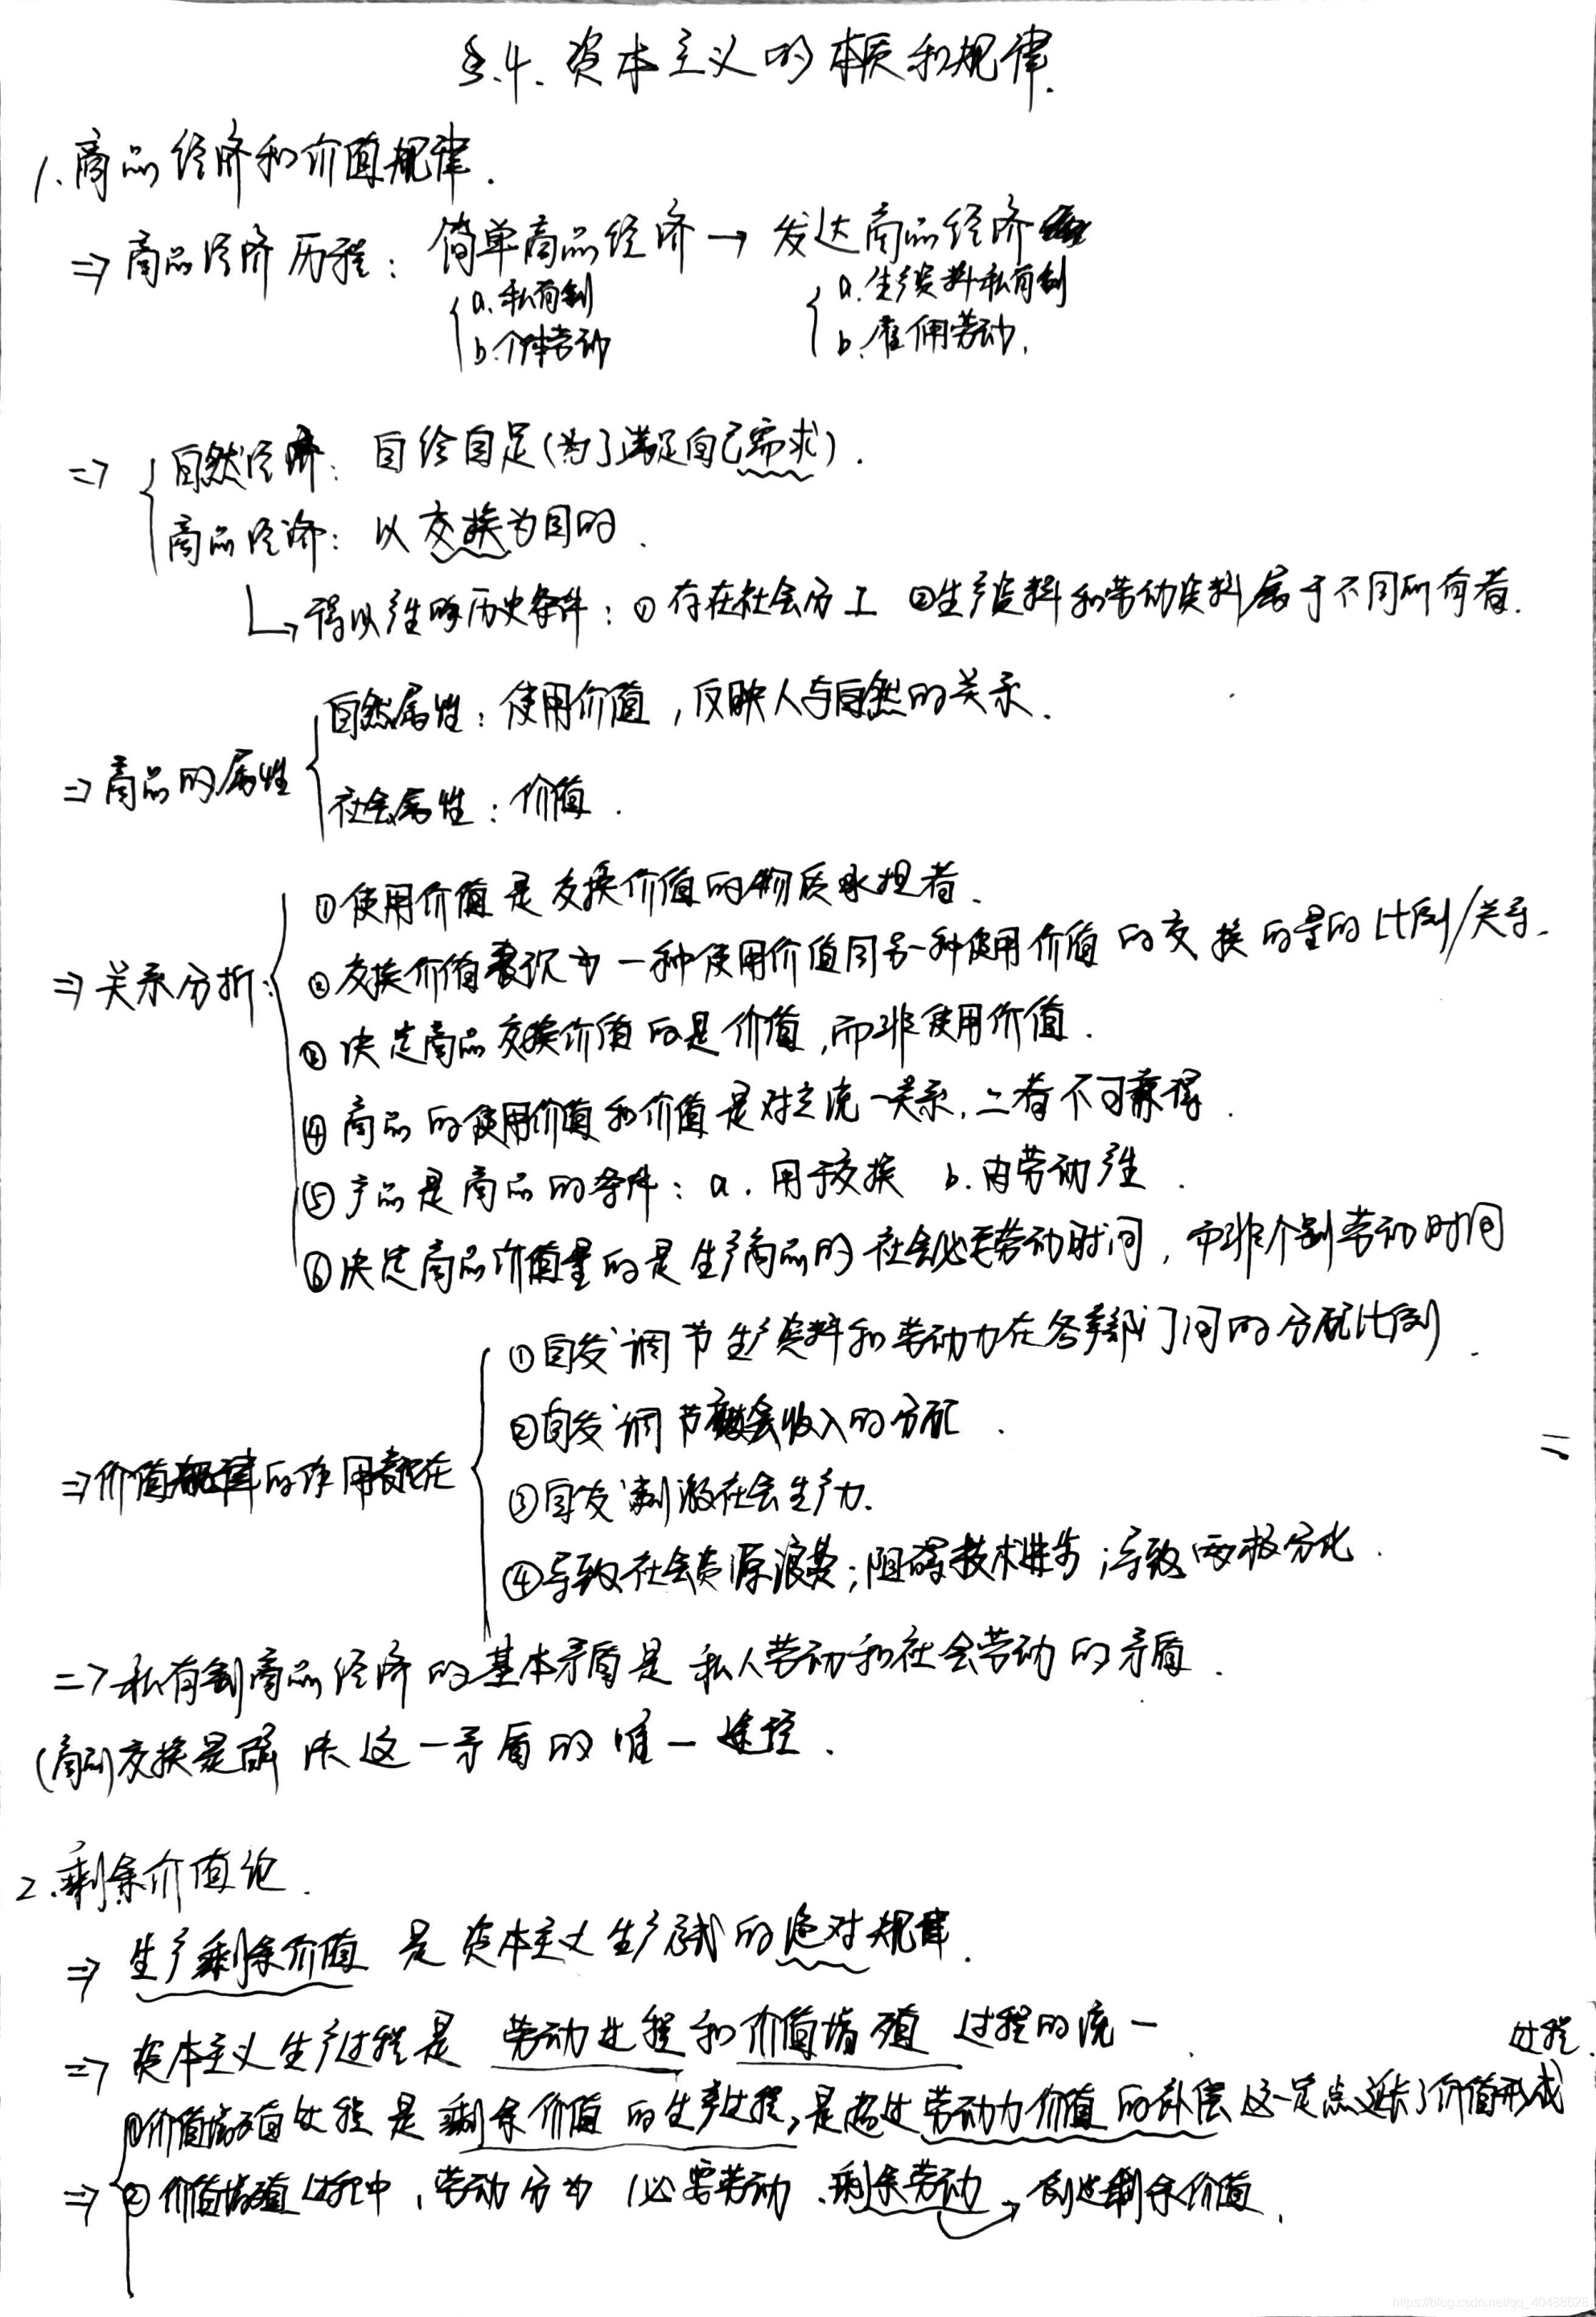 §.4. 资本主义的本质和规律.
1. 商品经济和价值规律.
⇒ 商品经济历程: 简单商品经济 → 发达商品经济
a. 私有制
b. 个体劳动
a. 生产资料私有制
b. 雇佣劳动.
⇒ 自然经济: 自给自足(为了满足自己需求).
商品经济: 以交换为目的.
↳ 得以产生的历史条件: ① 存在社会分工 ②生产资料和劳动资料属于不同所有者.
⇒ 商品的属性
自然属性: 使用价值, 反映人与自然的关系.
社会属性: 价值.
⇒ 关系分析:
① 使用价值是交换价值的物质承担者.
② 交换价值表现为一种使用价值同另一种使用价值的交换的量的比例/关系.
③ 决定商品交换价值的是价值, 而非使用价值.
④ 商品的使用价值和价值是对立统一关系, 二者不可兼得.
⑤ 产品是商品的条件: a. 用于交换 b. 由劳动产生.
⑥ 决定商品价值量的是生产商品的社会必要劳动时间, 而非个别劳动时间
⇒ 价值规律的作用表现在
① 自发调节生产资料和劳动力在各部门间的分配比例.
② 自发调节社会收入的分配.
③ 自发刺激社会生产力.
④ 导致社会资源浪费; 阻碍技术进步; 导致两极分化.
=> 私有制商品经济的基本矛盾是私人劳动和社会劳动的矛盾.
(商品)交换是解决这一矛盾的唯一途径.
2. 剩余价值论.
⇒ 生产剩余价值是资本主义生产方式的绝对规律.
⇒ 资本主义生产过程是劳动过程和价值增殖过程的统一.
①价值增殖过程是剩余价值的生产过程, 是超过劳动力价值的补偿这一定点延长了价值形成过程.
⇒ ② 价值增殖过程中, 劳动分为必要劳动、剩余劳动 → 创造剩余价值.
https://blog.csdn.net/qq_40488628